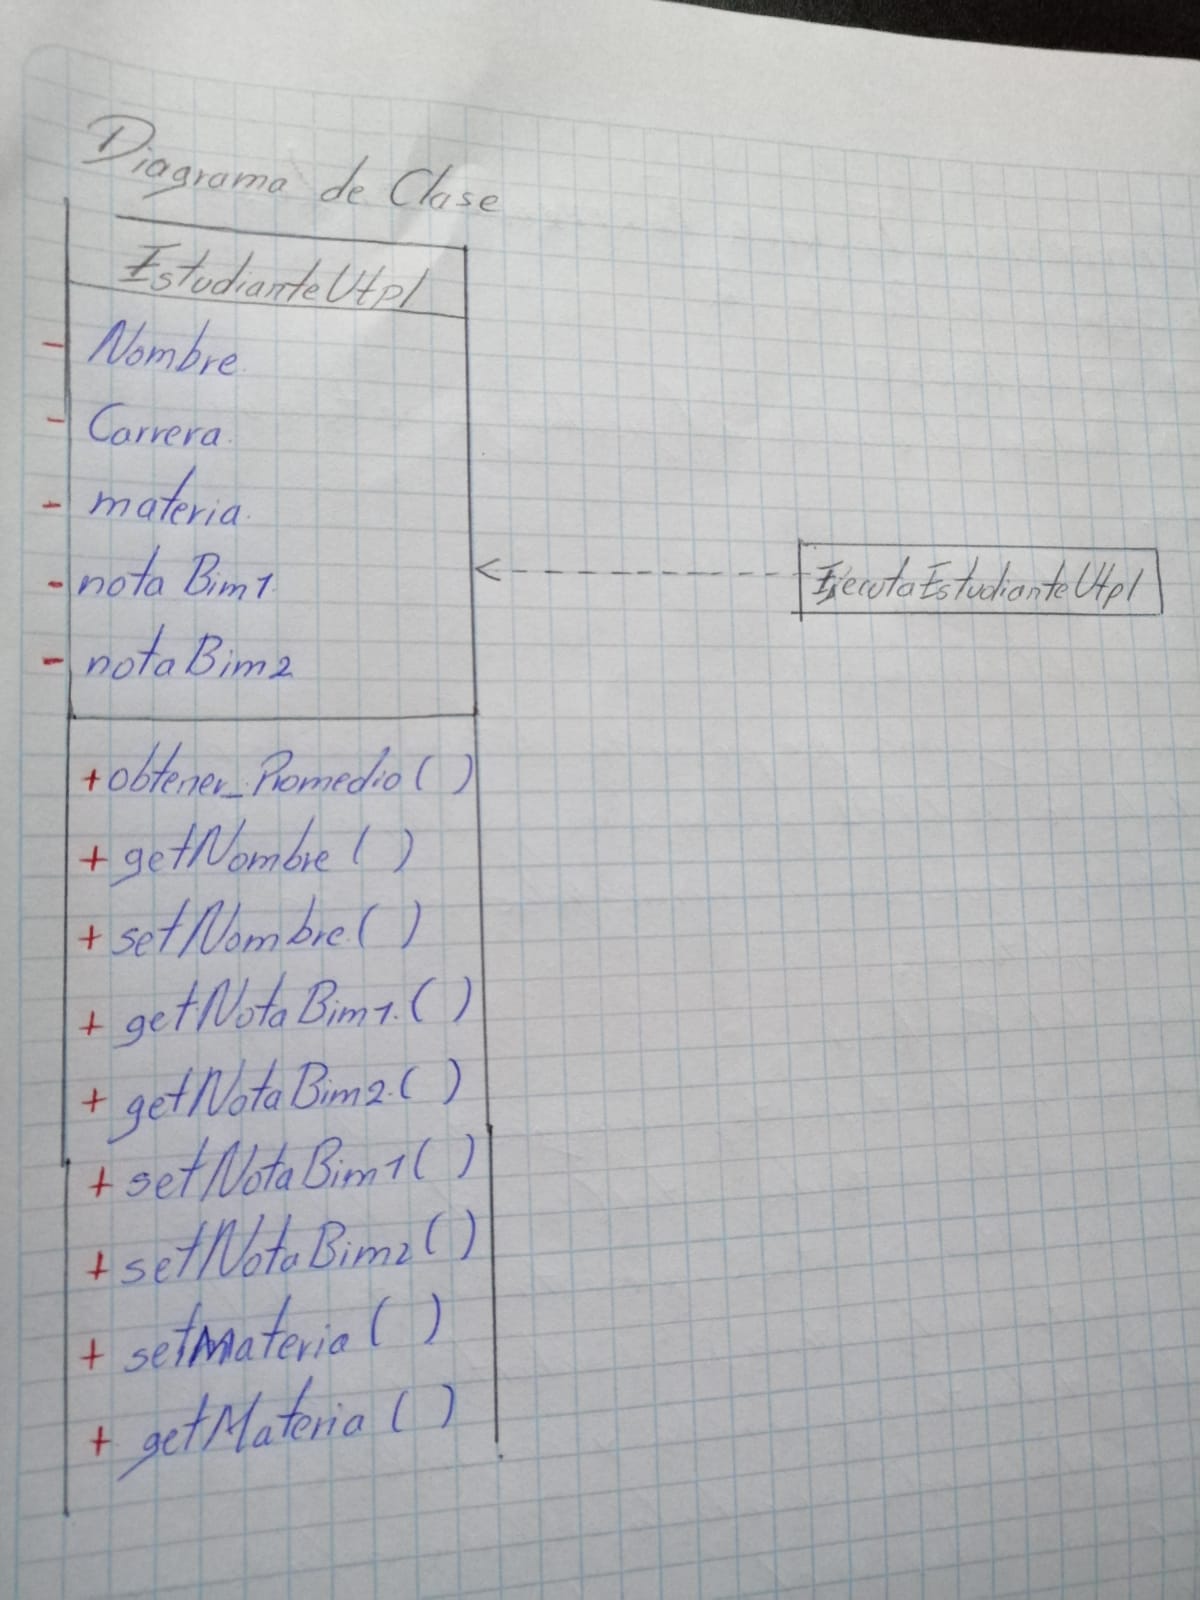 Diagrama de Clase
EstudianteUtpl
- Nombre
- Carrera.
- materia.
- nota Bim1
- nota Bim2
+ obtener_Promedio ( )
+ getNombre ( )
+ setNombre ( )
+ getNotaBim1. ( )
+ getNotaBim2. ( )
+ setNotaBim1 ( )
+ setNotaBim2 ( )
+ setMateria ( )
+ getMateria ( )
EjecutaEstudianteUtpl